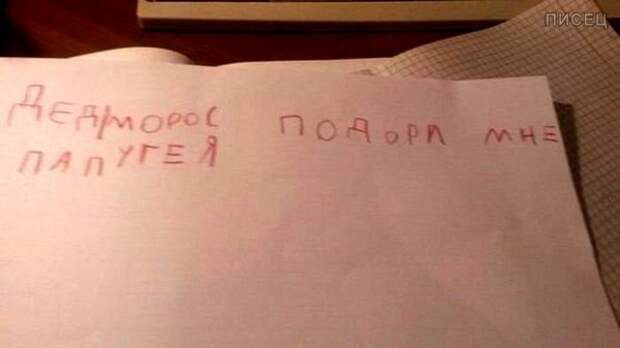 ПИСЕЦ
ДЕДМОРОС ПОДОРИ МНЕ
ПАПУГЕЯ